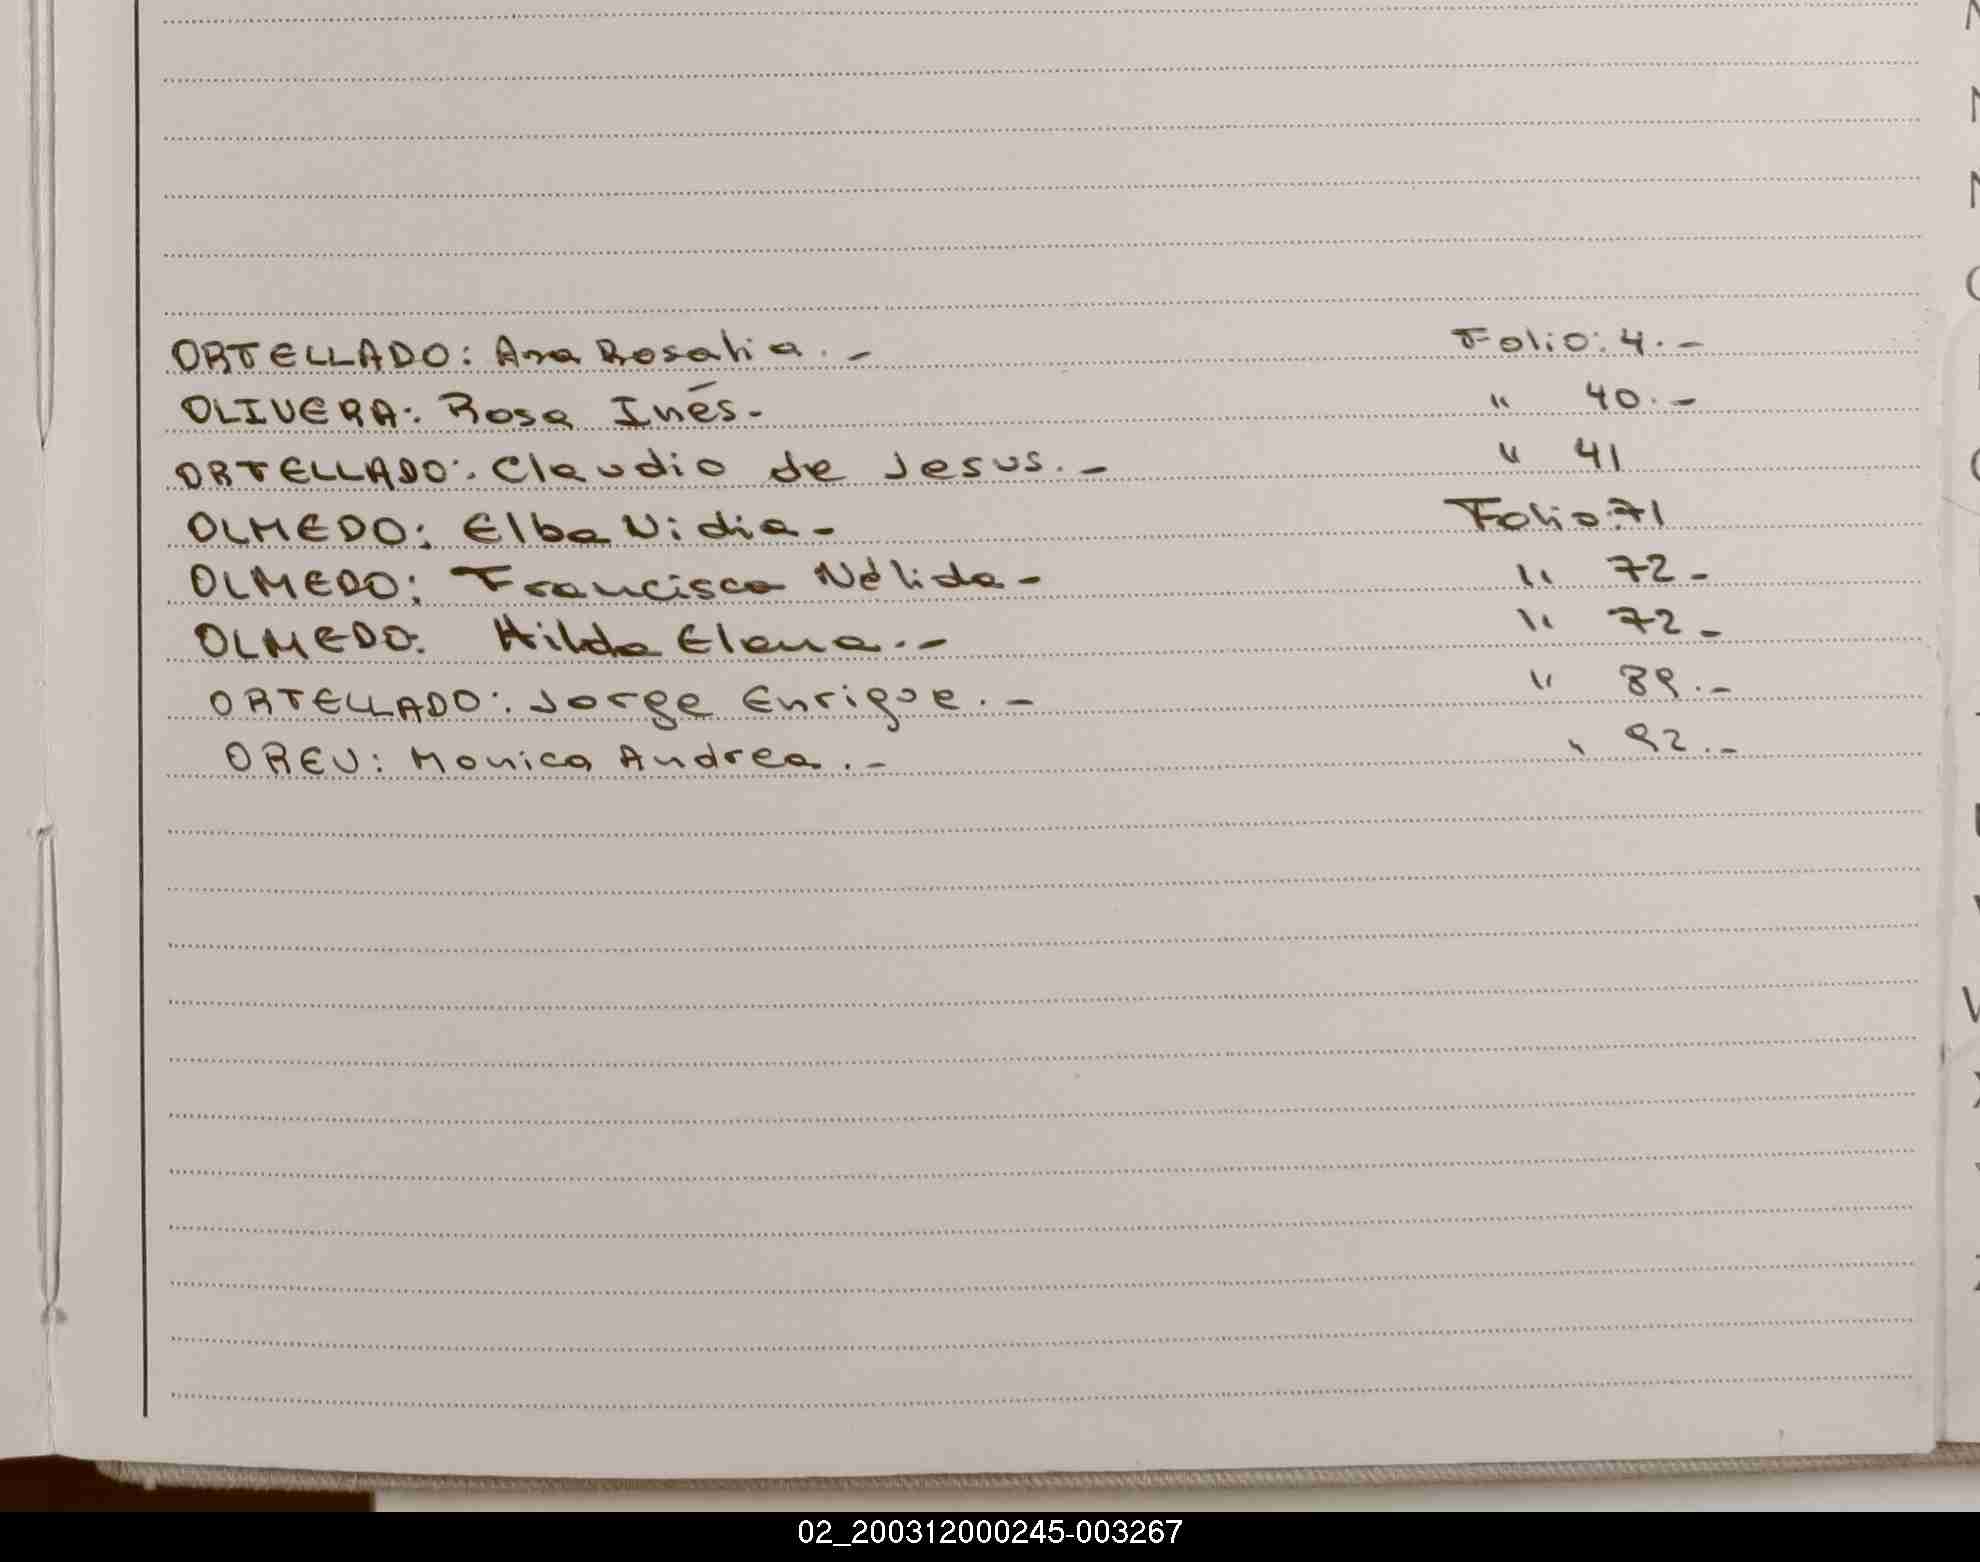 ORTELLADO: Ana Rosalia.- Folio: 4.-
OLIVERA: Rosa Inés- " 40.-
ORTELLADO: Claudio de Jesus.- " 41
OLMEDO: Elba Nidia- Folio: 71
OLMEDO: Francisca Nélida- " 72-
OLMEDO: Hilda Elena.- " 72-
ORTELLADO: Jorge Enrique.- " 89.-
OREU: Monica Andrea.- " 92.-
02_200312000245-003267